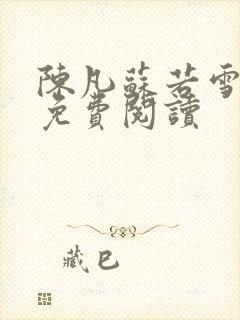 陳凡蘇若雪
免費閱讀
藏巴